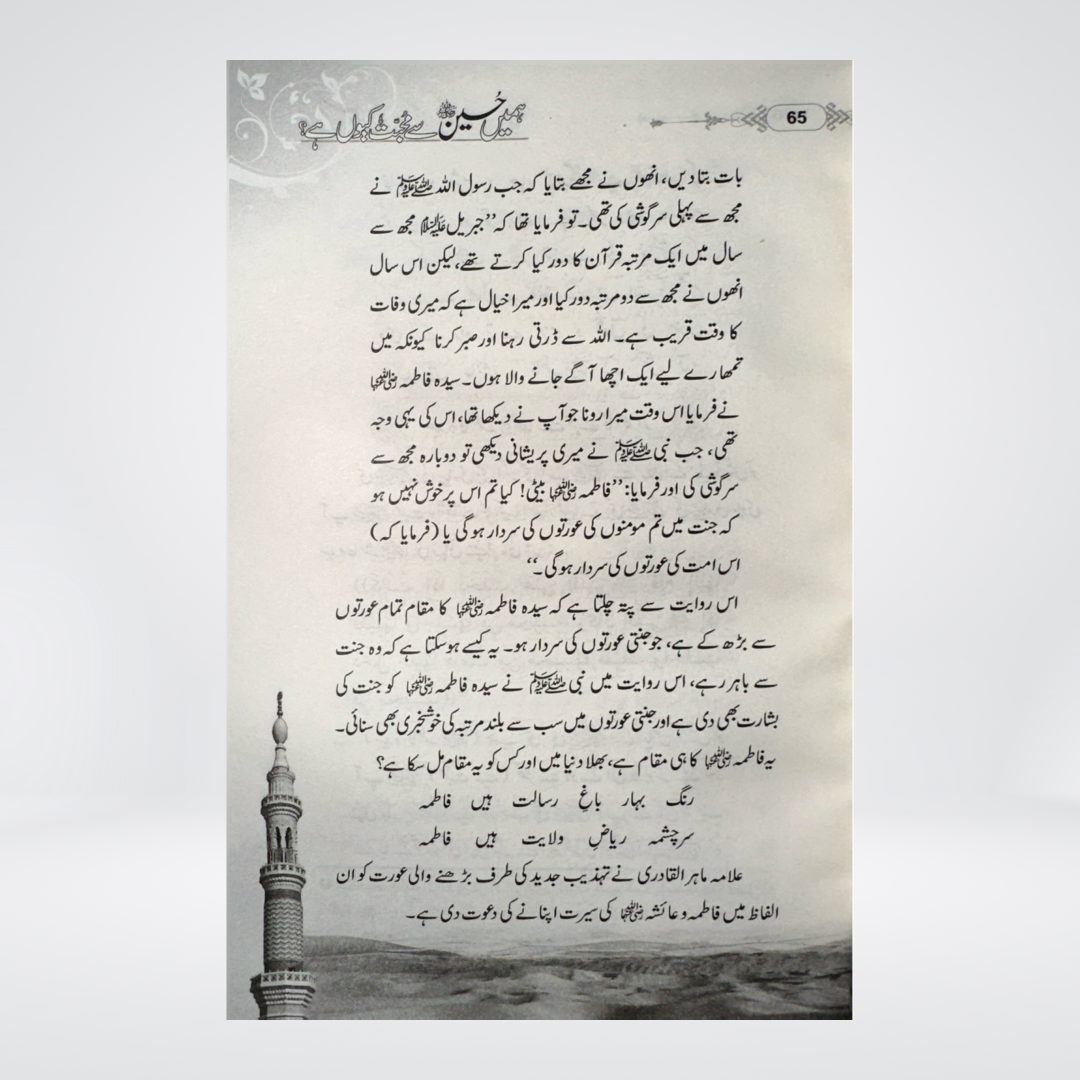 65
ہمیں حُسین رضی اللہ عنہ سے محبّت کیوں ہے؟
بات بتا دیں، انھوں نے مجھے بتایا کہ جب رسول اللہ ﷺ نے
مجھ سے پہلی سرگوشی کی تھی۔ تو فرمایا تھا کہ ’’جبریل علیہ السلام مجھ سے
سال میں ایک مرتبہ قرآن کا دور کیا کرتے تھے، لیکن اس سال
انھوں نے مجھ سے دو مرتبہ دور کیا اور میرا خیال ہے کہ میری وفات
کا وقت قریب ہے۔ اللہ سے ڈرتی رہنا اور صبر کرنا کیونکہ میں
تمھارے لیے ایک اچھا آگے جانے والا ہوں۔ سیدہ فاطمہ رضی اللہ عنہا
نے فرمایا اس وقت میرا رونا جو آپ نے دیکھا تھا، اس کی یہی وجہ
تھی، جب نبی ﷺ نے میری پریشانی دیکھی تو دوبارہ مجھ سے
سرگوشی کی اور فرمایا: ’’فاطمہ رضی اللہ عنہا بیٹی! کیا تم اس پر خوش نہیں ہو
کہ جنت میں تم مومنوں کی عورتوں کی سردار ہوگی یا (فرمایا کہ)
اس امت کی عورتوں کی سردار ہوگی۔‘‘
اس روایت سے پتہ چلتا ہے کہ سیدہ فاطمہ رضی اللہ عنہا کا مقام تمام عورتوں
سے بڑھ کے ہے، جو جنتی عورتوں کی سردار ہو۔ یہ کیسے ہوسکتا ہے کہ وہ جنت
سے باہر رہے، اس روایت میں نبی ﷺ نے سیدہ فاطمہ رضی اللہ عنہا کو جنت کی
بشارت بھی دی ہے اور جنتی عورتوں میں سب سے بلند مرتبہ کی خوشخبری بھی سنائی۔
یہ فاطمہ رضی اللہ عنہا کا ہی مقام ہے، بھلا دنیا میں اور کس کو یہ مقام مل سکا ہے؟
رنگ بہار باغِ رسالت ہیں فاطمہ
سرچشمہ ریاضِ ولایت ہیں فاطمہ
علامہ ماہر القادری نے تہذیب جدید کی طرف بڑھنے والی عورت کو ان
الفاظ میں فاطمہ و عائشہ رضی اللہ عنہا کی سیرت اپنانے کی دعوت دی ہے۔